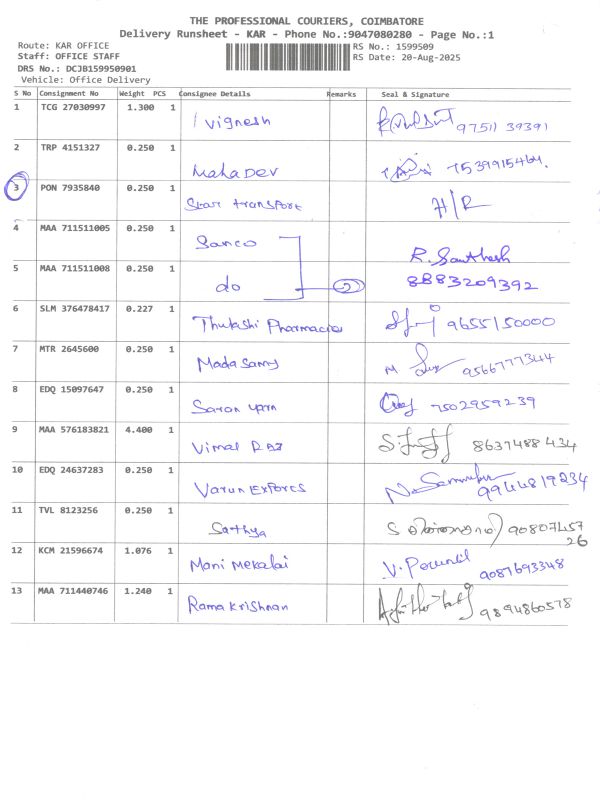 THE PROFESSIONAL COURIERS, COIMBATORE
Delivery Runsheet - KAR - Phone No.:9047080280 - Page No.:1
Route: KAR OFFICE
Staff: OFFICE STAFF
DRS No.: DCJB159950901
Vehicle: Office Delivery
RS No.: 1599509
RS Date: 20-Aug-2025
S No Consignment No Weight PCS Consignee Details Remarks Seal & Signature
1 TCG 27030997 1.300 1 Vignesh 97511 39391
2 TRP 4151327 0.250 1 Mahadev 7539915464.
3 PON 7935840 0.250 1 Star transport H/R
4 MAA 711511005 0.250 1 Sanco R. Santhosh
5 MAA 711511008 0.250 1 do 2 8883209392
6 SLM 376478417 0.227 1 Thulashi Pharmacies 9655150000
7 MTR 2645600 0.250 1 Madasamy M 9566777344
8 EDQ 15097647 0.250 1 Saron yarn 7502959239
9 MAA 576183821 4.400 1 Vimal Raj 8637488434
10 EDQ 24637283 0.250 1 Varun Exports 9944819234
11 TVL 8123256 0.250 1 Sathya S 90807457
26
12 KCM 21596674 1.076 1 Mani Mekalai V. 9087693348
13 MAA 711440746 1.240 1 Ramakrishnan 9894860578